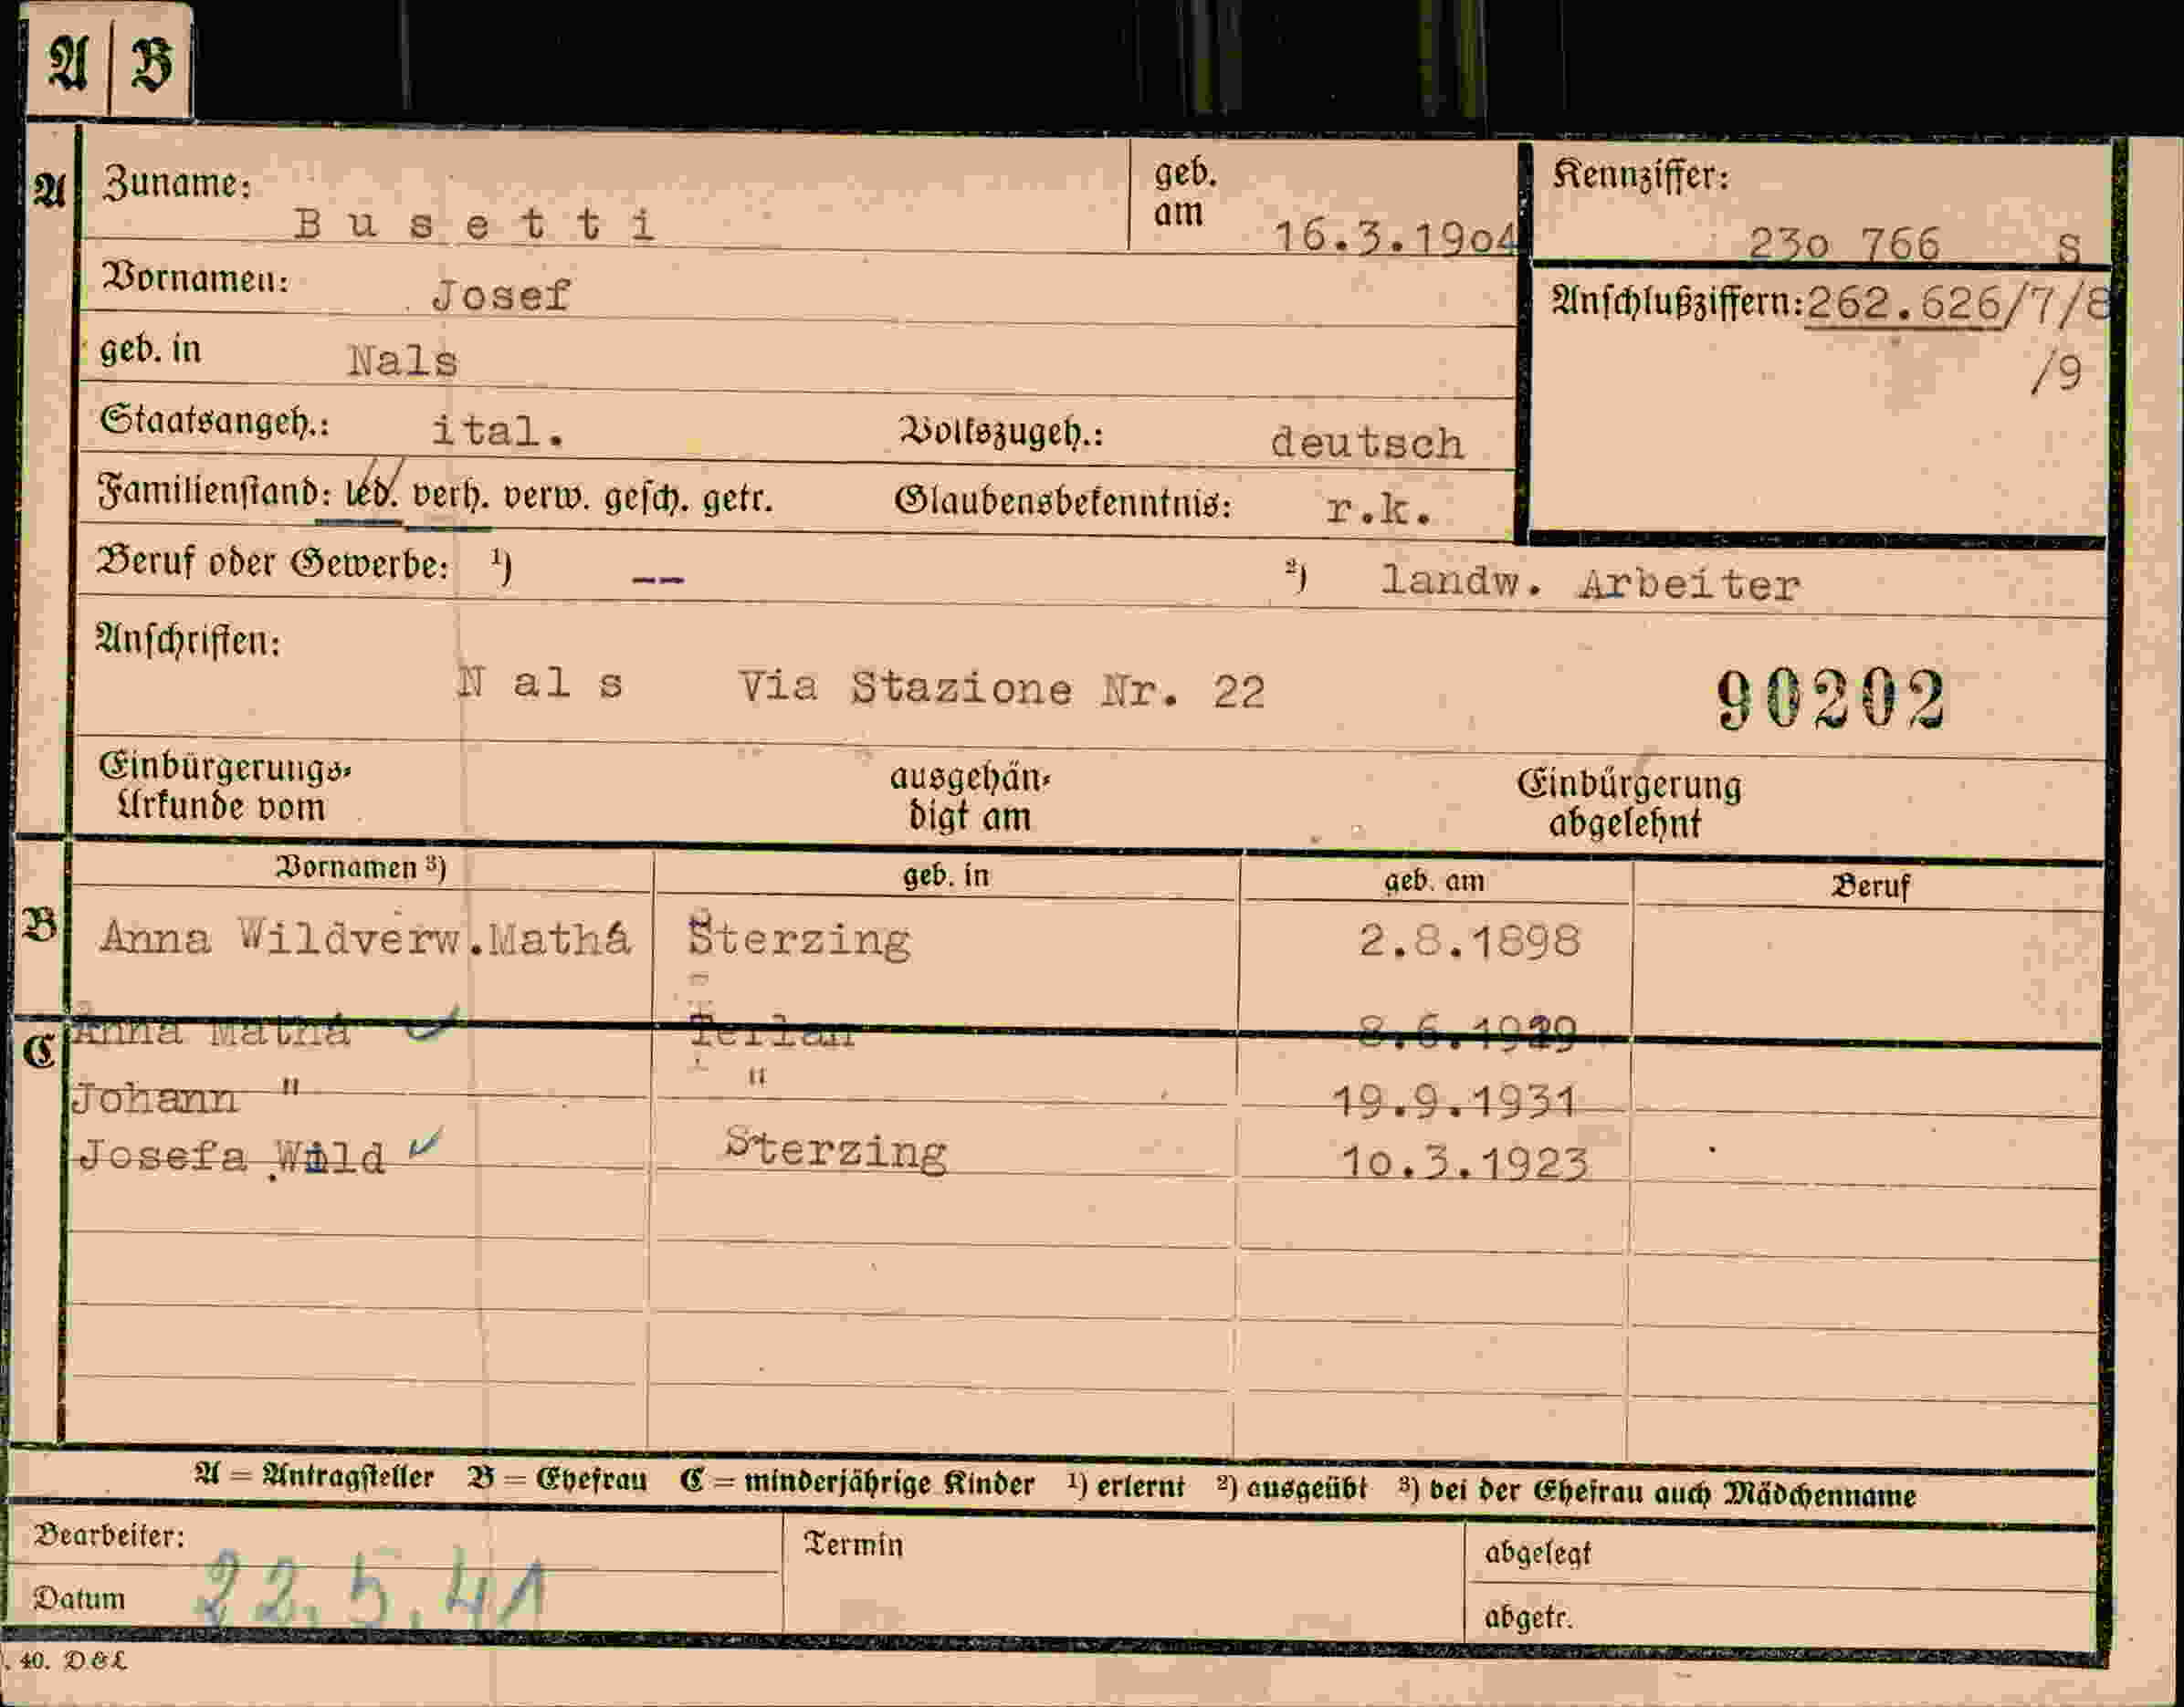 A | B
A Zuname: Busetti geb. am 16.3.1904 Kennziffer: 230 766 S
Vornamen: Josef Anschlußziffern: 262.626/7/8
/9
geb. in Nals
Staatsangeh.: ital. Volkszugeh.: deutsch
Familienstand: led. verh. verw. gesch. getr. Glaubensbekenntnis: r.k.
Beruf oder Gewerbe: 1) -- 2) landw. Arbeiter
Anschriften:
Nals Via Stazione Nr. 22 90202
Einbürgerungs-Urkunde vom ausgehändigt am Einbürgerung abgelehnt
Vornamen 3) geb. in geb. am Beruf
B Anna Wildverw.Mathá Sterzing 2.8.1898
C Anna Mathá Terlan 8.6.1929
Johann " " 19.9.1931
Josefa Wild Sterzing 10.3.1923
A = Antragsteller B = Ehefrau C = minderjährige Kinder 1) erlernt 2) ausgeübt 3) bei der Ehefrau auch Mädchenname
Bearbeiter: Termin abgelegt
Datum 22.5.41 abgetr.
. 40. D & L